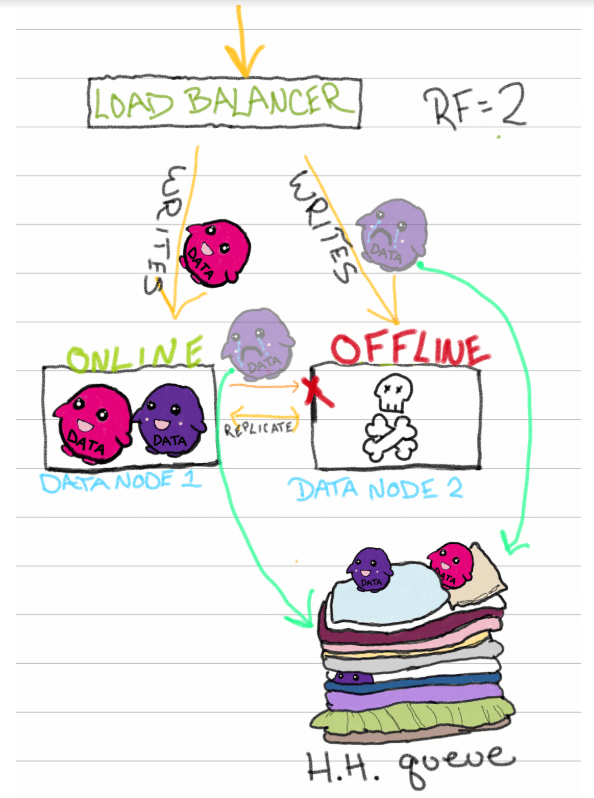 LOAD BALANCER
RF=2
WRITES
WRITES
DATA
DATA
ONLINE
DATA
OFFLINE
DATA
DATA
REPLICATE
DATA NODE 1
DATA NODE 2
DATA
DATA
H.H. queue